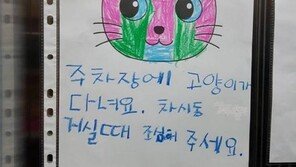 주차장에 고양이가
다녀요. 차시동
거실때 조심해 주세요.